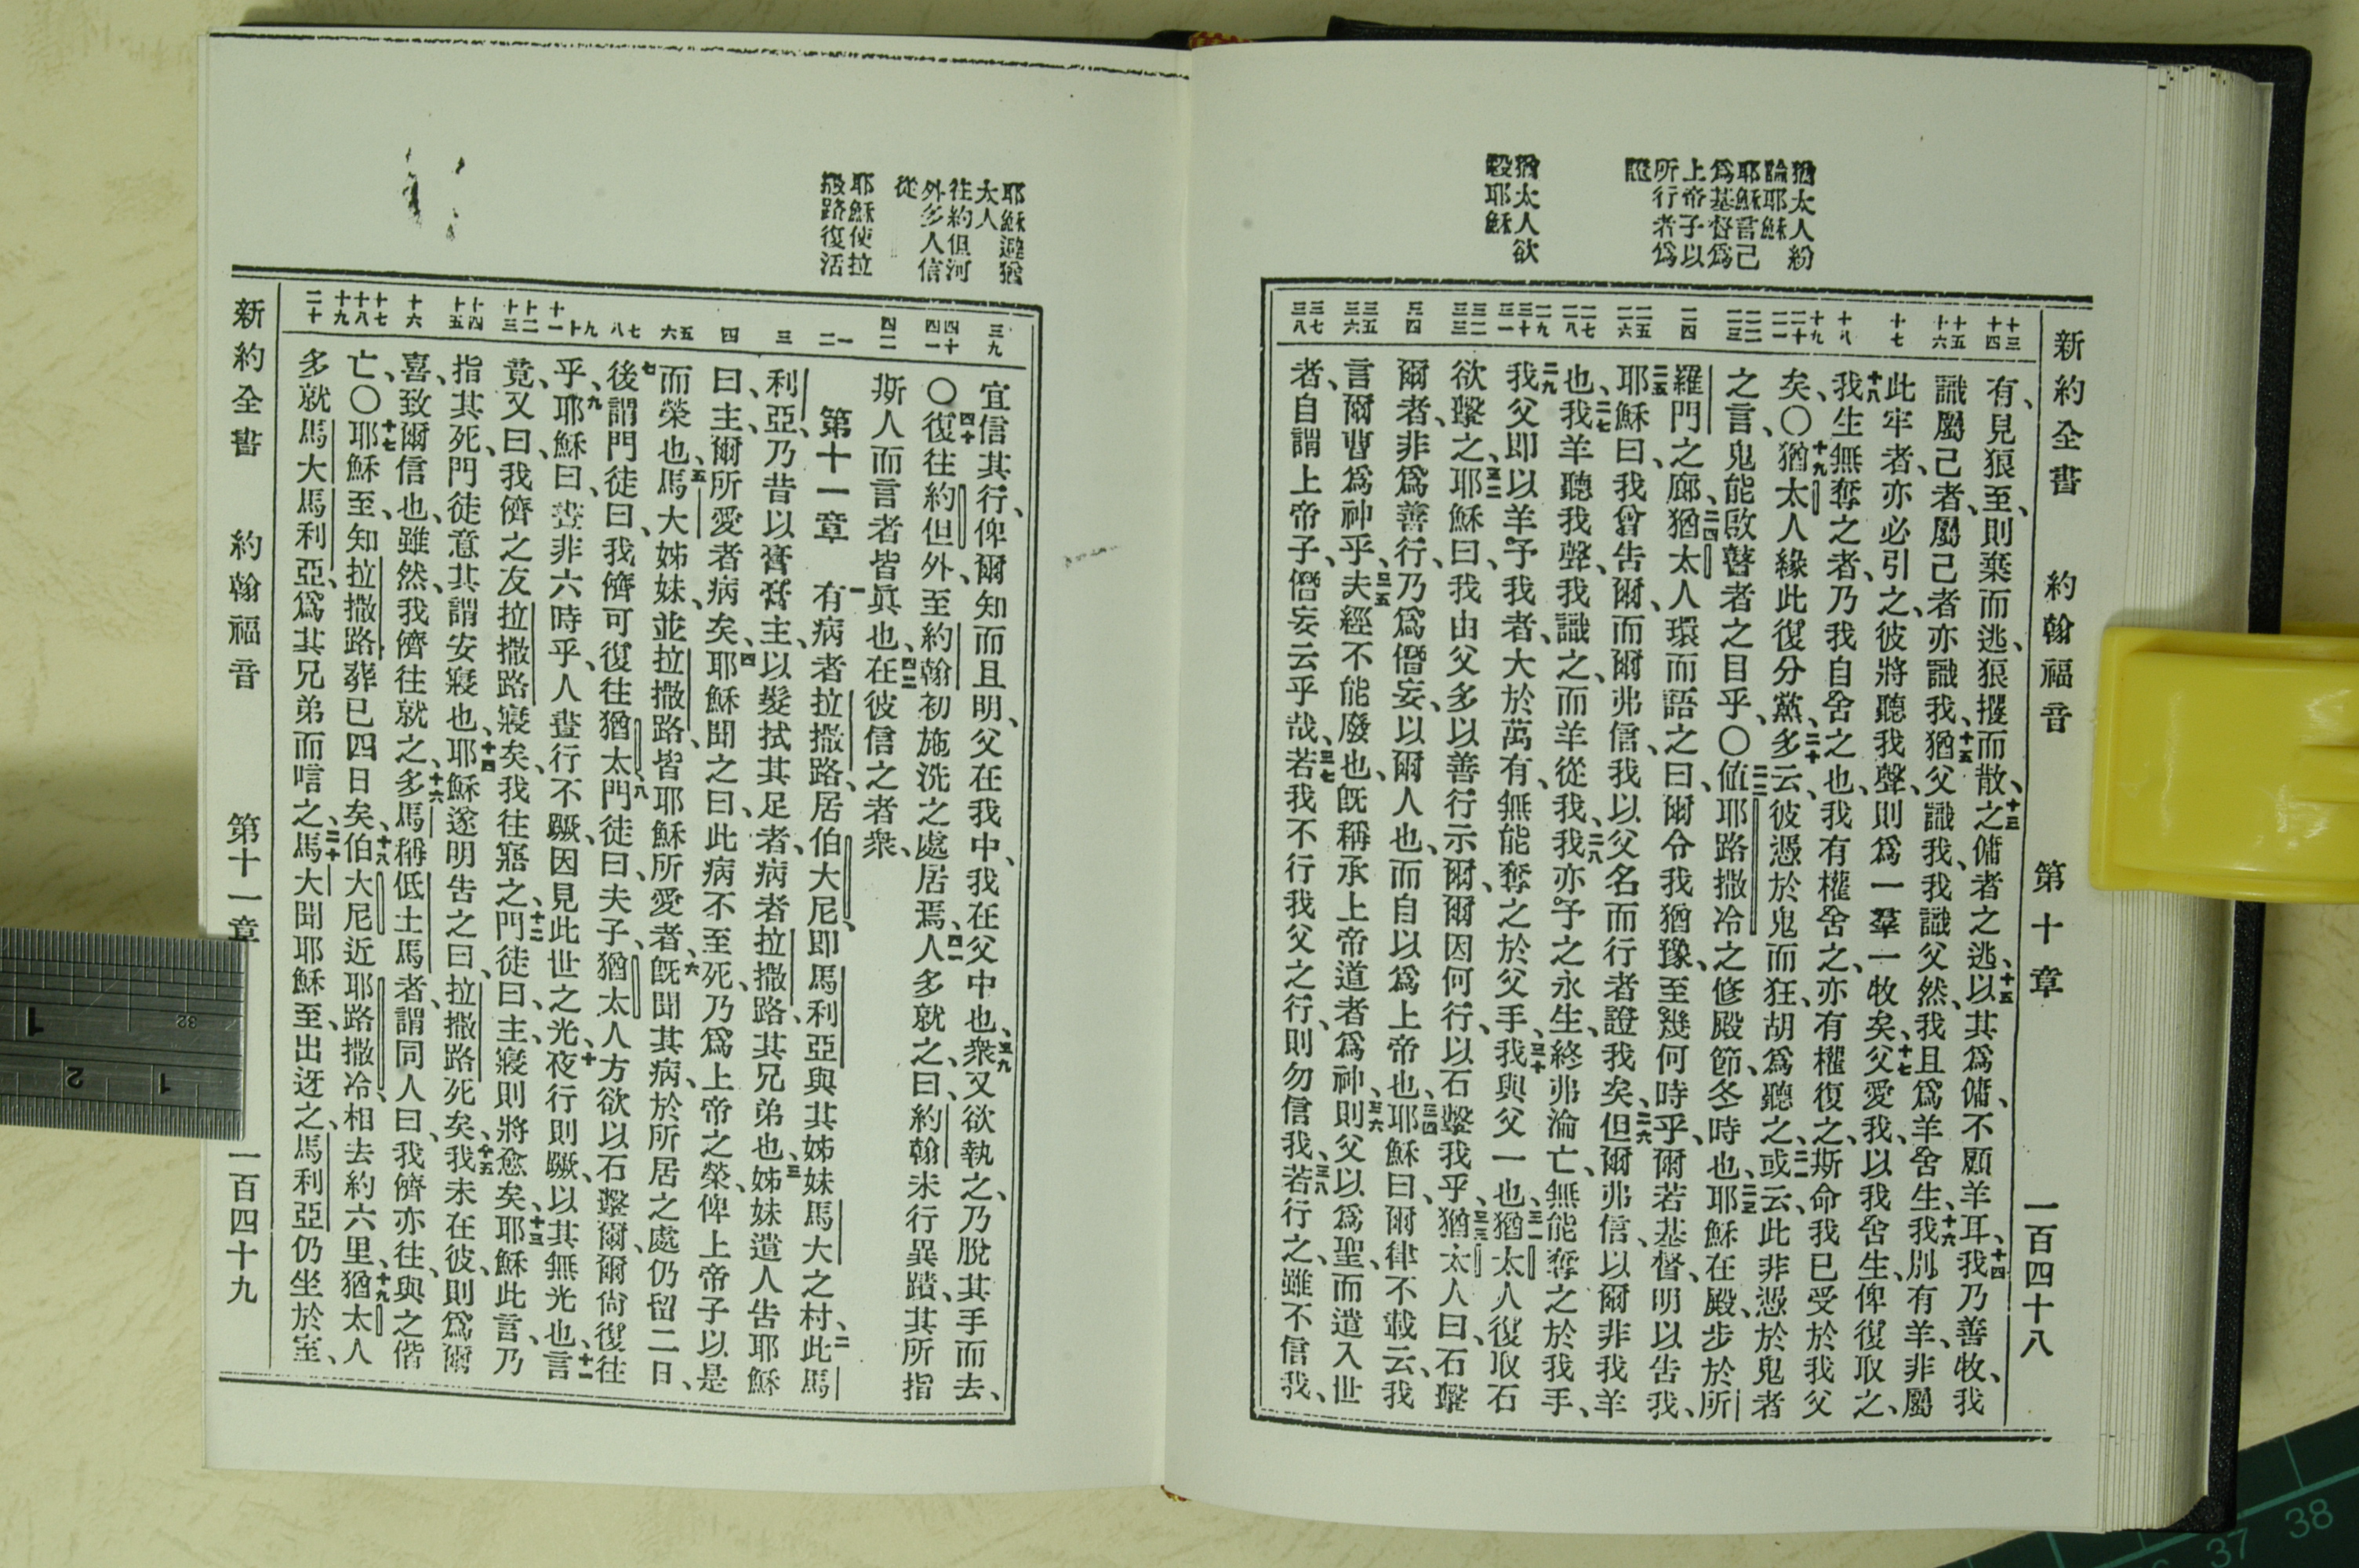 新約全書 約翰福音 第十章 一百四十八
猶太人紛
論耶穌
耶穌言己
爲基督爲
上帝子以
所行者爲
證
猶太人欲
殺耶穌
十三 十四
十五 十六
十七
十八
十九 二十 二一
二二 二三
二四
二五 二六
二七 二八
二九 三十 三一
三二 三三
三四
三五 三六
三七 三八
有、見狼至、則棄而逃、狼攫而散、十三之傭者之逃、十五以其爲傭、不顧羊耳、十四我乃善牧、我
識屬己者、屬己者亦識我、十五猶父識我、我識父然、我且爲羊舍生、十六我別有羊、非屬
此牢者、亦必引之、彼將聽我聲、則爲一羣一牧矣、十七父愛我、以我舍生、俾復取之、
十八我生無奪之者、乃我自舍之也、我有權舍之、亦有權復之、斯命我已受於我父
矣、〇十九猶太人緣此復分黨、二十多云、彼憑於鬼而狂、胡爲聽之、二一或云、此非憑於鬼者
之言、鬼能啟瞽者之目乎、〇二二値耶路撒冷之修殿節、冬時也、二三耶穌在殿、步於所
羅門之廊、二四猶太人環而語之曰、爾令我猶豫、至幾何時乎、爾若基督、明以告我、
二五耶穌曰、我曾告爾、而爾弗信、我以父名而行者證我矣、二六但爾弗信、以爾非我羊
也、二七我羊聽我聲、我識之、而羊從我、二八我亦予之永生、終弗淪亡、無能奪之於我手、
二九我父即以羊予我者、大於萬有、無能奪之於父手、三十我與父一也、三一猶太人復取石
欲擊之、三二耶穌曰、我由父多以善行示爾、爾因何行、以石擊我乎、三三猶太人曰、石擊
爾者、非爲善行、乃爲僭妄、以爾人也、而自以爲上帝也、三四耶穌曰、爾律不載云、我
言爾曹爲神乎、三五夫經不能廢也、既稱承上帝道者爲神、三六則父以爲聖、而遣入世
者、自謂上帝子、僭妄云乎哉、三七若我不行我父之行、則勿信我、三八若行之、雖不信我、
耶穌避猶
太人
往約但河
外多人信
從
耶穌使拉
撒路復活
三九
四十 四一
四二
一 二
三
四
五 六
七 八
九 十 十一
十二 十三
十四 十五
十六
十七 十八 十九
二十
宜信其行、俾爾知而且明、父在我中、我在父中也、三九衆又欲執之、乃脫其手而去、
〇四十復往約但外、至約翰初施洗之處居焉、四一人多就之、曰、約翰未行異蹟、其所指
斯人而言者皆眞也、四二在彼信之者衆、
第十一章 一有病者拉撒路、居伯大尼、即馬利亞與其姊妹馬大之村、二此馬
利亞、乃昔以膏膏主、以髮拭其足者、病者拉撒路、其兄弟也、三姊妹遣人告耶穌
曰、主、爾所愛者病矣、四耶穌聞之曰、此病不至死、乃爲上帝之榮、俾上帝子以是
而榮也、五馬大姊妹、並拉撒路、皆耶穌所愛者、六既聞其病、於所居之處仍留二日、
七後謂門徒曰、我儕可復往猶太、八門徒曰、夫子、猶太人方欲以石擊爾、爾尙復往
乎、九耶穌曰、晝非六時乎、人晝行不蹶、因見此世之光、十夜行則蹶、以其無光也、十一言
竟、又曰、我儕之友拉撒路寢矣、我往寤之、十二門徒曰、主、寢則將愈矣、十三耶穌此言、乃
指其死、門徒意其謂安寢也、十四耶穌遂明告之曰、拉撒路死矣、十五我未在彼、則爲爾
喜、致爾信也、雖然、我儕往就之、十六多馬稱低土馬者、謂同人曰、我儕亦往、與之偕
亡、〇十七耶穌至、知拉撒路葬已四日矣、十八伯大尼近耶路撒冷、相去約六里、十九猶太人
多就馬大馬利亞、爲其兄弟而唁之、二十馬大聞耶穌至、出迓之、馬利亞仍坐於室、
新約全書 約翰福音 第十一章 一百四十九
1
32
2 1
37 38